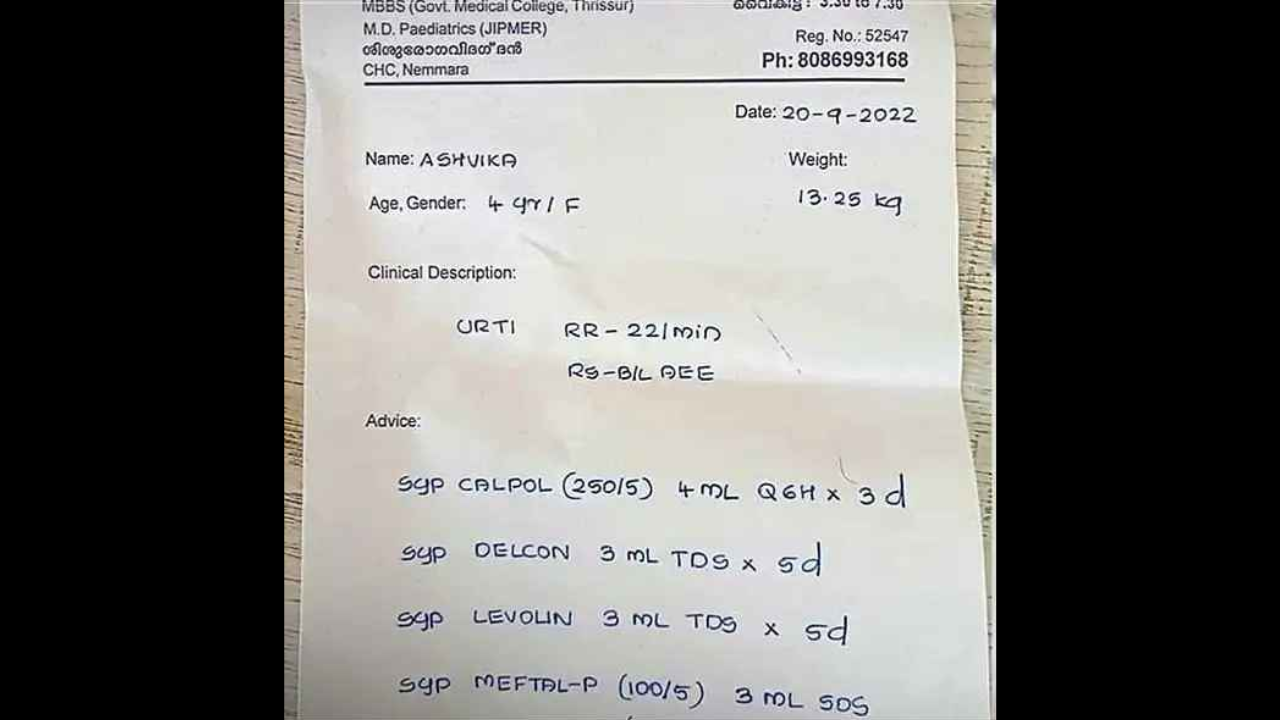 MBBS (Govt. Medical College, Thrissur)
വൈകിട്ട് : 3.30 to 7.30
M.D. Paediatrics (JIPMER)
Reg. No.: 52547
ശിശുരോഗവിദഗ്ദൻ
Ph: 8086993168
CHC, Nemmara
Date: 20-9-2022
Name: ASHVIKA
Weight:
13.25 kg
Age, Gender: 4 yr / F
Clinical Description:
URTI RR - 22/min
RS - B/L AEE
Advice:
syp CALPOL (250/5) 4 mL Q6H x 3 d
syp DELCON 3 mL TDS x 5d
syp LEVOLIN 3 mL TDS x 5d
syp MEFTAL-P (100/5) 3 mL SOS